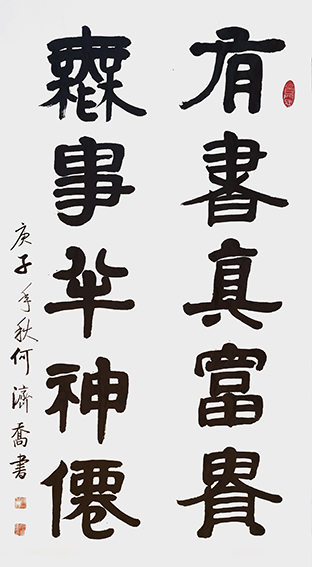 有書真富貴
無事半神僊
庚子年秋何濟喬書